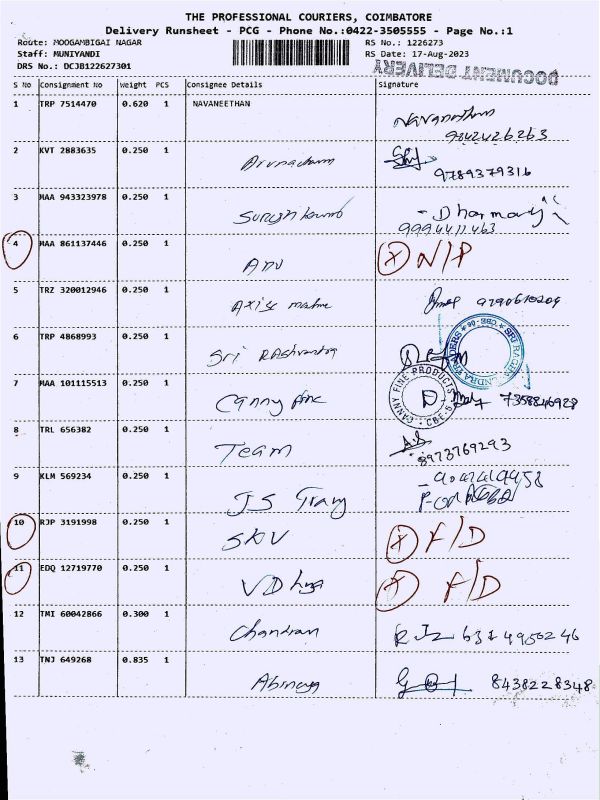 THE PROFESSIONAL COURIERS, COIMBATORE
Delivery Runsheet - PCG - Phone No.:0422-3505555 - Page No.:1
Route: MOOGAMBIGAI NAGAR RS No.: 1226273
Staff: MUNIYANDI RS Date: 17-Aug-2023
DRS No.: DCJB122627301
DOCUMENT DELIVERY
S No Consignment No Weight PCS Consignee Details Signature
1 TRP 7514470 0.620 1 NAVANEETHAN Navaneethan
9842426263
2 KVT 2883635 0.250 1 Arunacham
9789379316
3 MAA 943323978 0.250 1 Sureshkumar - Dharmaraj
9994411463
4 MAA 861137446 0.250 1 ANU X N/P
5 TRZ 320012946 0.250 1 Axise
6 TRP 4868993 0.250 1 Sri Raghvendra
7 MAA 101115513 0.250 1 Canny fine 7358846928
CANNY FINE PRODUCTS * CBE-6 *
8 TRL 656382 0.250 1 Team
8973769293
9 KLM 569234 0.250 1 JS Trang
10 RJP 3191998 0.250 1 SKV X F/D
11 EDQ 12719770 0.250 1 VD X F/D
12 TMI 60042866 0.300 1 Chandran
13 TNJ 649268 0.835 1 Abinaya 8438228348